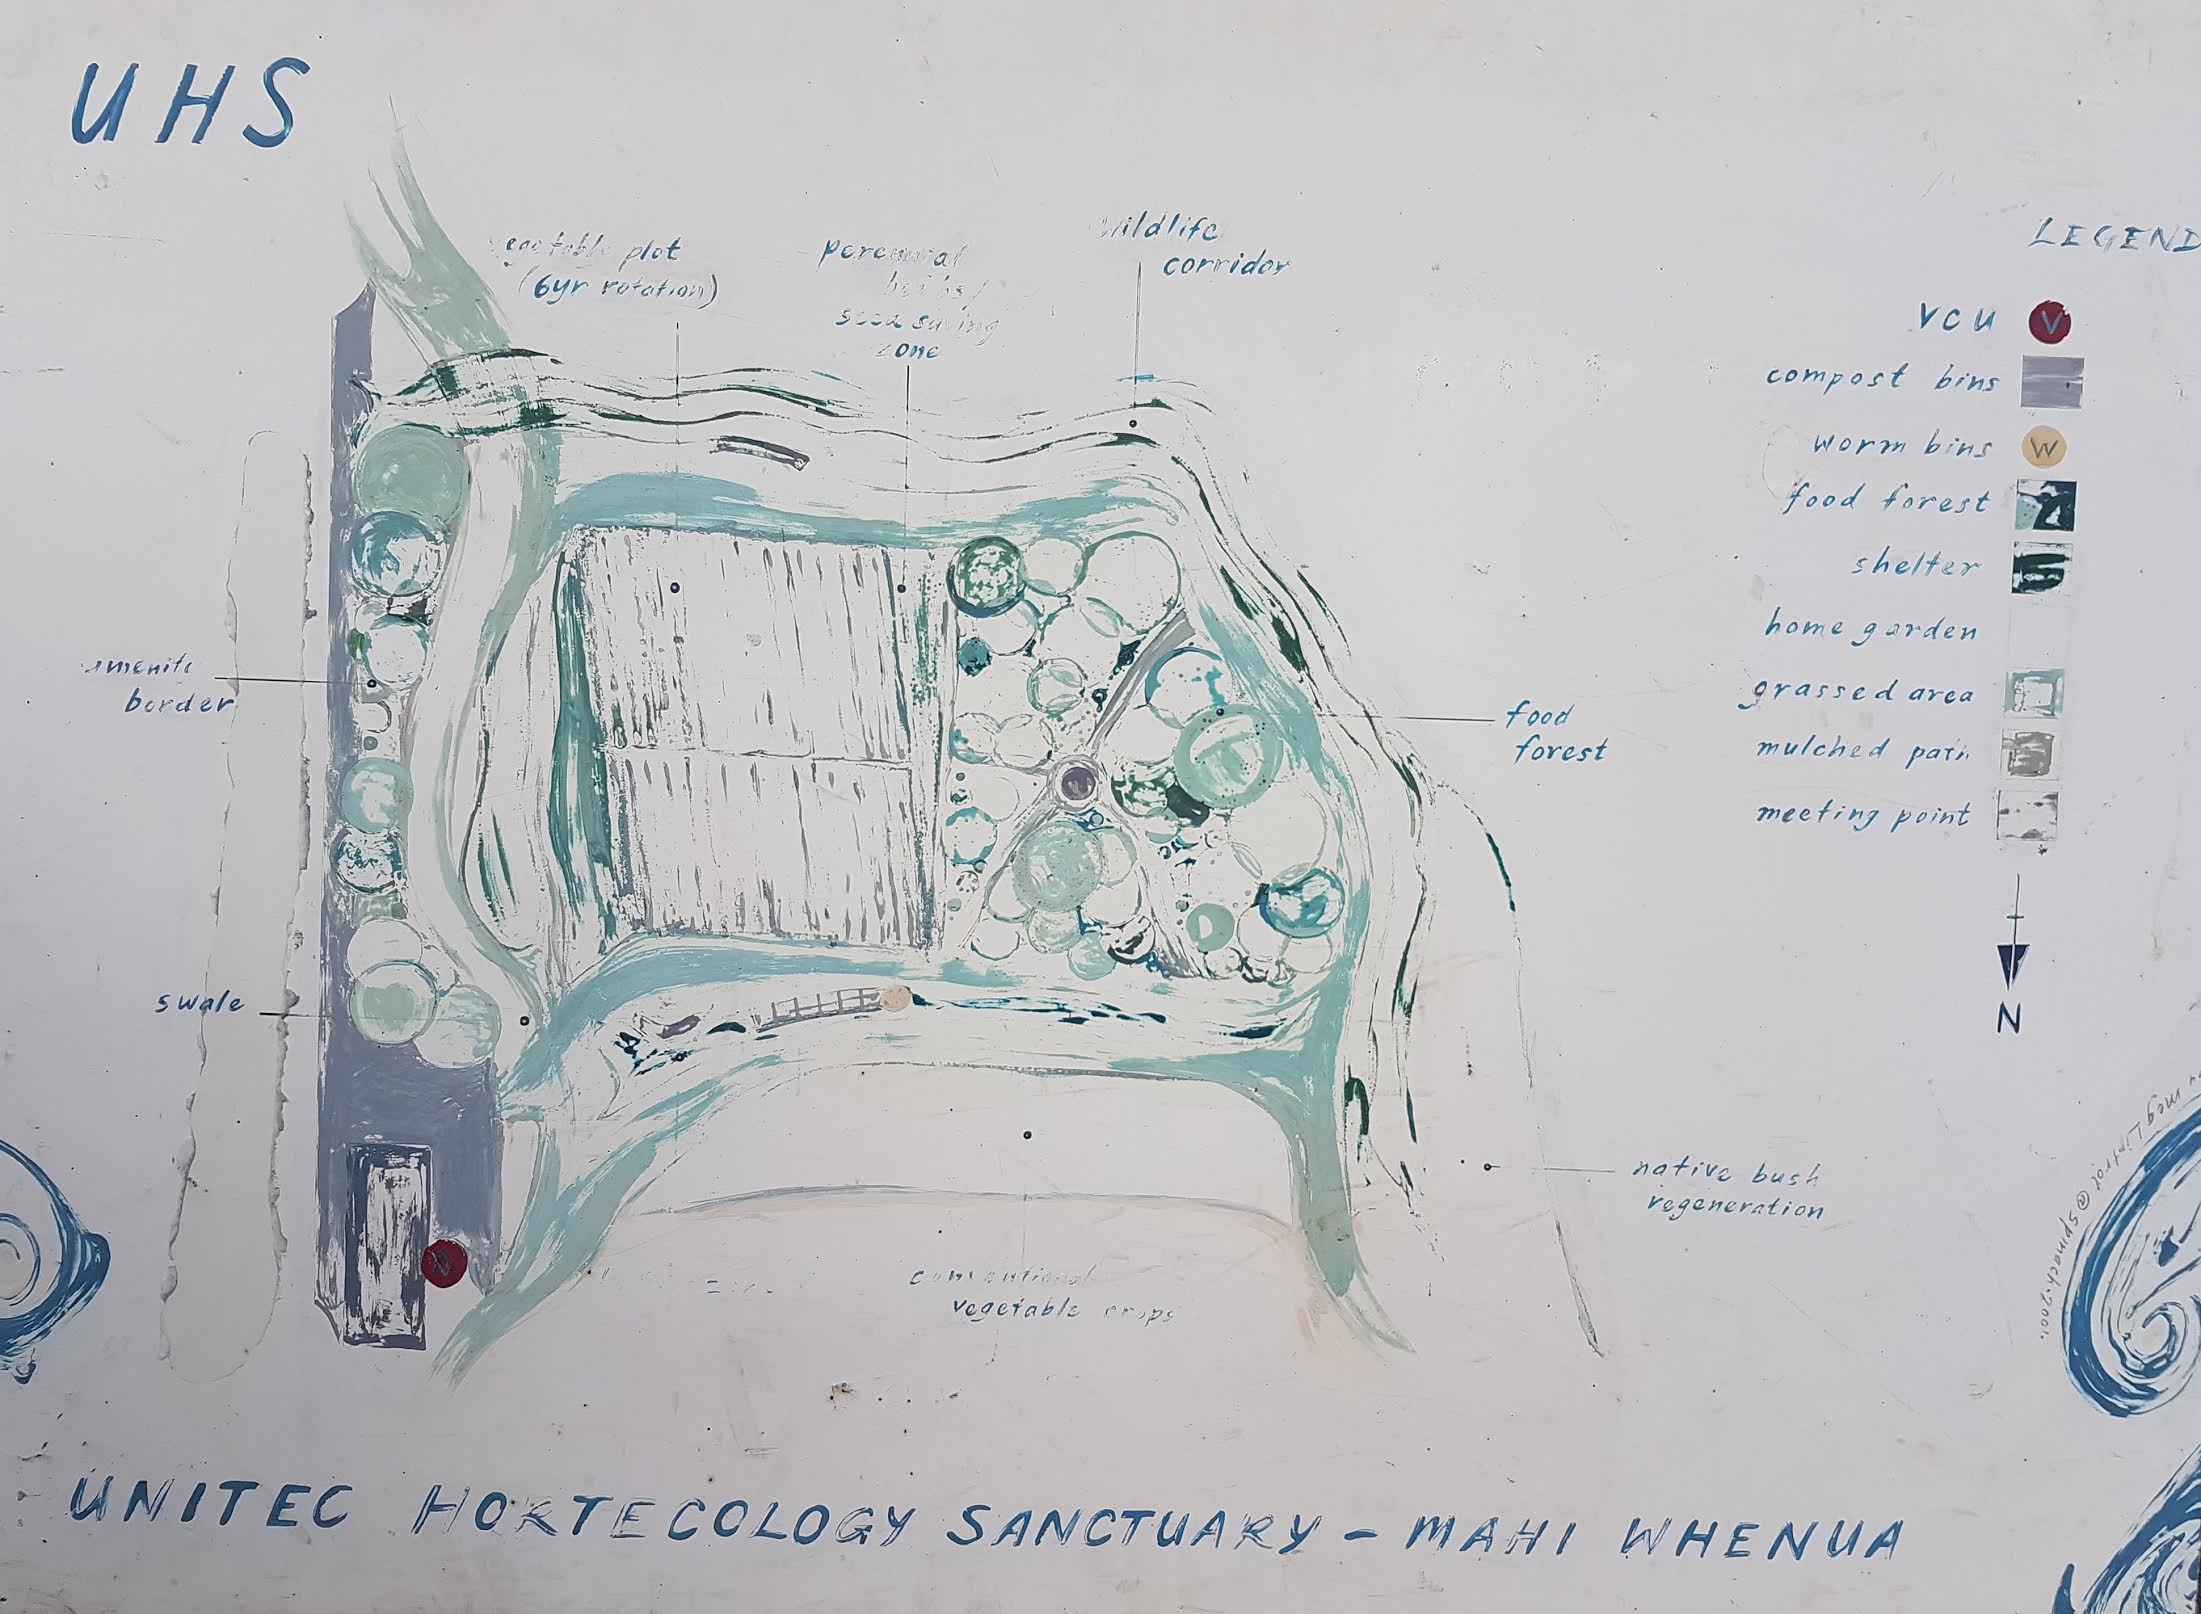 UHS
vegetable plot
(6yr rotation)
perennial
herbs/
seed saving
zone
wildlife
corridor
LEGEND
VCU V
compost bins
worm bins W
food forest
shelter
home garden
grassed area
mulched path
meeting point
N
border
swale
food
forest
native bush
regeneration
conventional
vegetable crops
@spinach.2001.
UNITEC HORTECOLOGY SANCTUARY - MAHI WHENUA